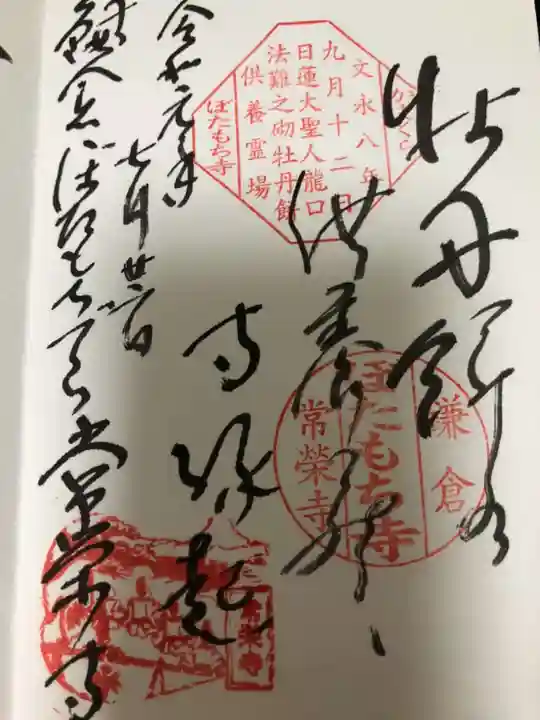 牡丹餅
供養
寺縁起
令和元年
七月廿六日
鎌倉ぼたもち寺常栄寺
かまくら
文永八年
九月十二日
日蓮大聖人龍口
法難之砌牡丹餅
供養霊場
ぼたもち寺
鎌倉
ぼたもち寺
常榮寺
常栄寺